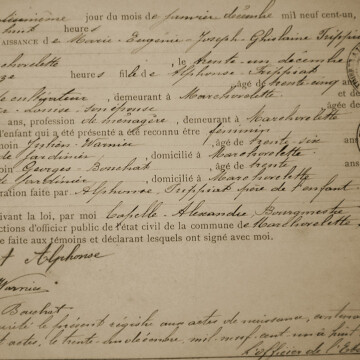 jour du mois de janvier décembre mil neuf cent-un,
huit heures
AISSANCE de Marie-Eugénie-Joseph-Ghislaine
Marchovelette, le trente-un décembre
heures fille d Alphonse
, âgé de trente-cinq ans
, demeurant à Marchovelette
ans, profession de ménagère, demeurant à Marchovelette
l'enfant qui a été présenté a été reconnu être féminin
Julien Warnier, âgé de trente-six ans
de jardinier, domicilié à Marchovelette
Georges Bouchat, âgé de trente ans
de jardinier, domicilié à Marchovelette
ration faite par Alphonse père de l'enfant
uivant la loi, par moi Capelle-Alexandre Bourgmestre
ctions d'officier public de l'état civil de la commune de Marchovelette
e faite aux témoins et déclarant lesquels ont signé avec moi.
Alphonse
Warnier
Bouchat
le présent registre aux actes de naissance, contenant
actes, le trente-un décembre, mil neuf cent un à huit
L'officier de l'Etat